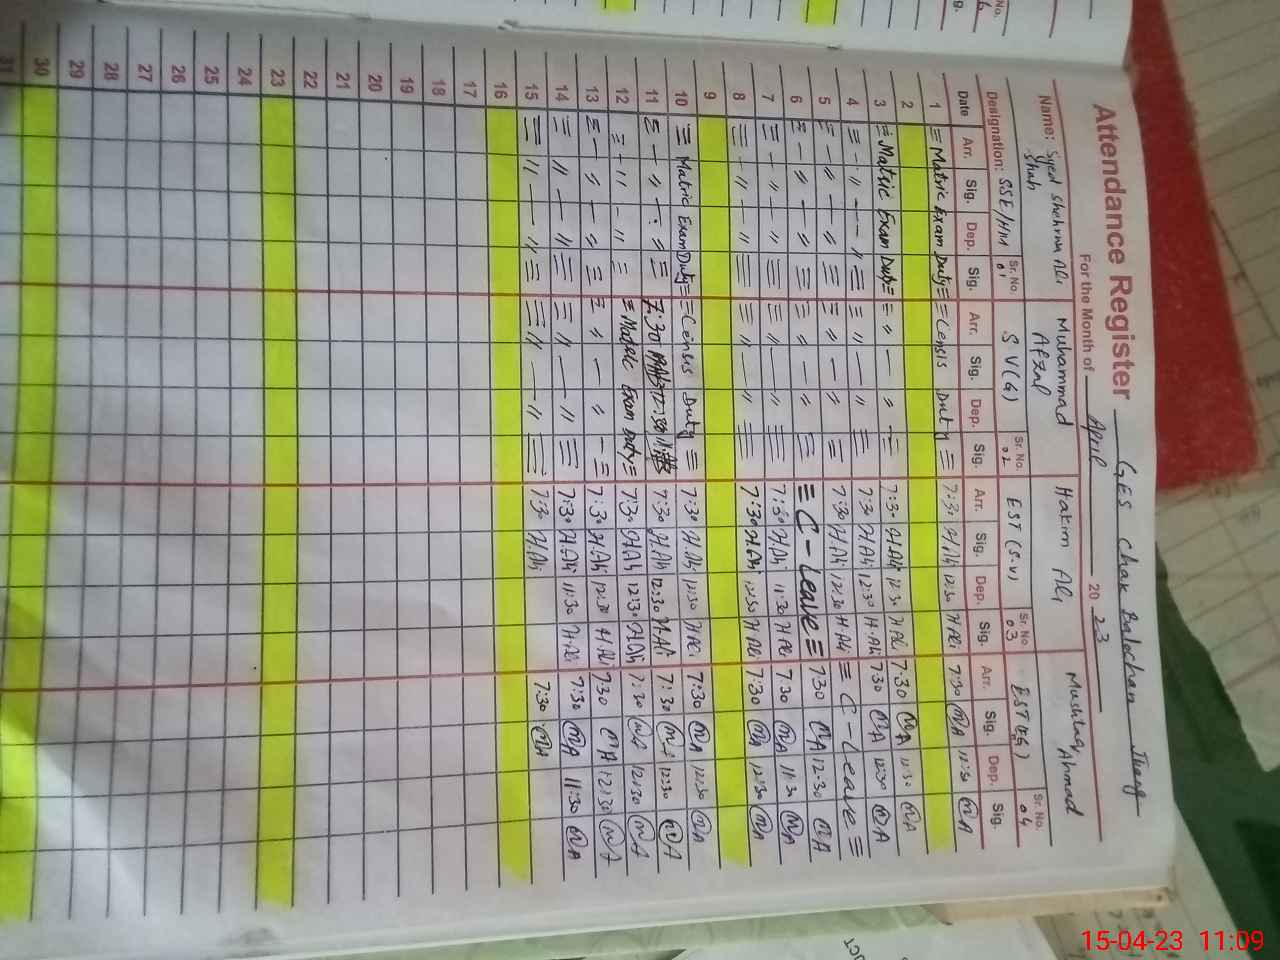 Attendance Register GES Chak Balochan Jhang
For the Month of April 20 23
Name: Syed Shehram Ali Shah Muhammad Afzal Hakim Ali Mushtaq Ahmad
Designation: SSE/HM Sr. No. 01 S V(G) Sr. No. 02 EST (S-V) Sr. No. 03 EST Sr. No. 04
Date Arr. Sig. Dep. Sig. Arr. Sig. Dep. Sig. Arr. Sig. Dep. Sig. Arr. Sig. Dep. Sig.
1 = Matric Exam Duty = = Censis Duty = 7:30 H.Ali 12:30 H.Ali 7:30 MA 12:30 MA
2
3 = Matric Exam Duty = = " — " = 7:30 H.Ali 12:30 H.Ali 7:30 MA 12:30 MA
4 = — " — " = = " — " = 7:30 H.Ali 12:30 H.Ali 7:30 MA 12:30 MA
5 = — " — " = = " — " = 7:30 H.Ali 12:30 H.Ali = C - Leave =
6 = — " — " = = " — " = = C - Leave = 7:30 MA 12:30 MA
7 = — " — " = = " — " = 7:30 H.Ali 11:30 H.Ali 7:30 MA 11:30 MA
8 = — " — " = = " — " = 7:30 H.Ali 12:30 H.Ali 7:30 MA 12:30 MA
9
10 = Matric Exam Duty = = Census Duty = 7:30 H.Ali 12:30 H.Ali 7:30 MA 12:30 MA
11 = — " — " = 7:30 12:30 7:30 H.Ali 12:30 H.Ali 7:30 MA 12:30 MA
12 = — " — " = = Matric Exam Duty = 7:30 H.Ali 12:30 H.Ali 7:30 MA 12:30 MA
13 = — " — " = = " — " = 7:30 H.Ali 12:30 H.Ali 7:30 MA 12:30 MA
14 = " — " = = " — " = 7:30 H.Ali 11:30 H.Ali 7:30 MA 11:30 MA
15 = " — " = = " — " = 7:30 H.Ali 7:30 MA
16
17
18
19
20
21
22
23
24
25
26
27
28
29
30
31
15-04-23 11:09